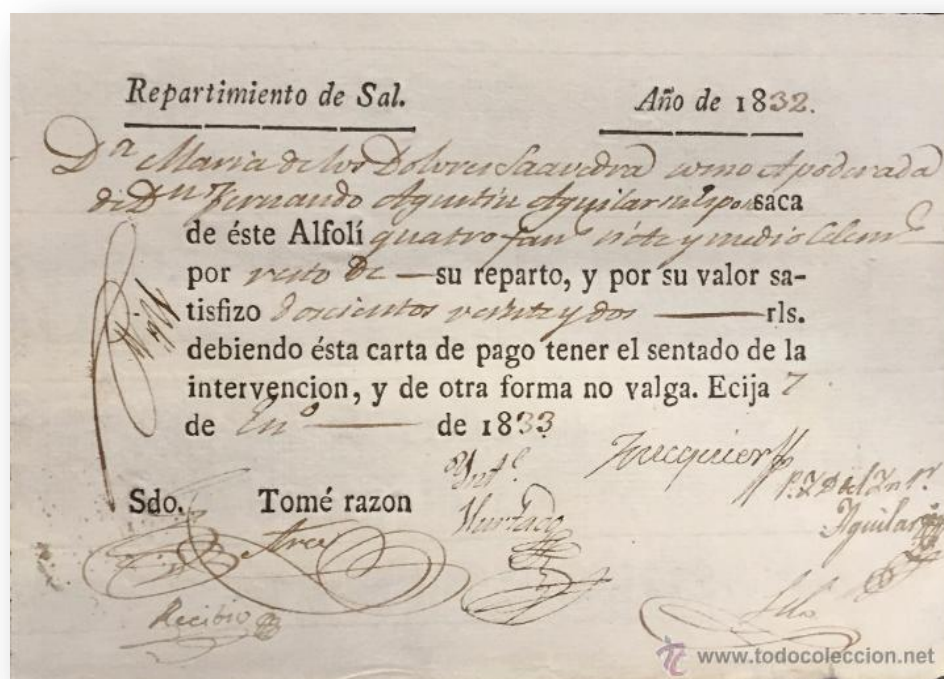 Repartimiento de Sal. Año de 1832.
Dª Maria de los Dolores Saavedra como Apoderada
de Dn Fernando Agustin Aguilar saca
de éste Alfolí quatro fans siete y medio Celems
por resto de su reparto, y por su valor sa-
tisfizo doscientos veinte y dos rls.
debiendo ésta carta de pago tener el sentado de la
intervencion, y de otra forma no valga. Ecija 7
de Eno de 1833
Sdo. Tomé razon
Hurtado
Aguilar
Arce
Recibio
www.todocoleccion.net